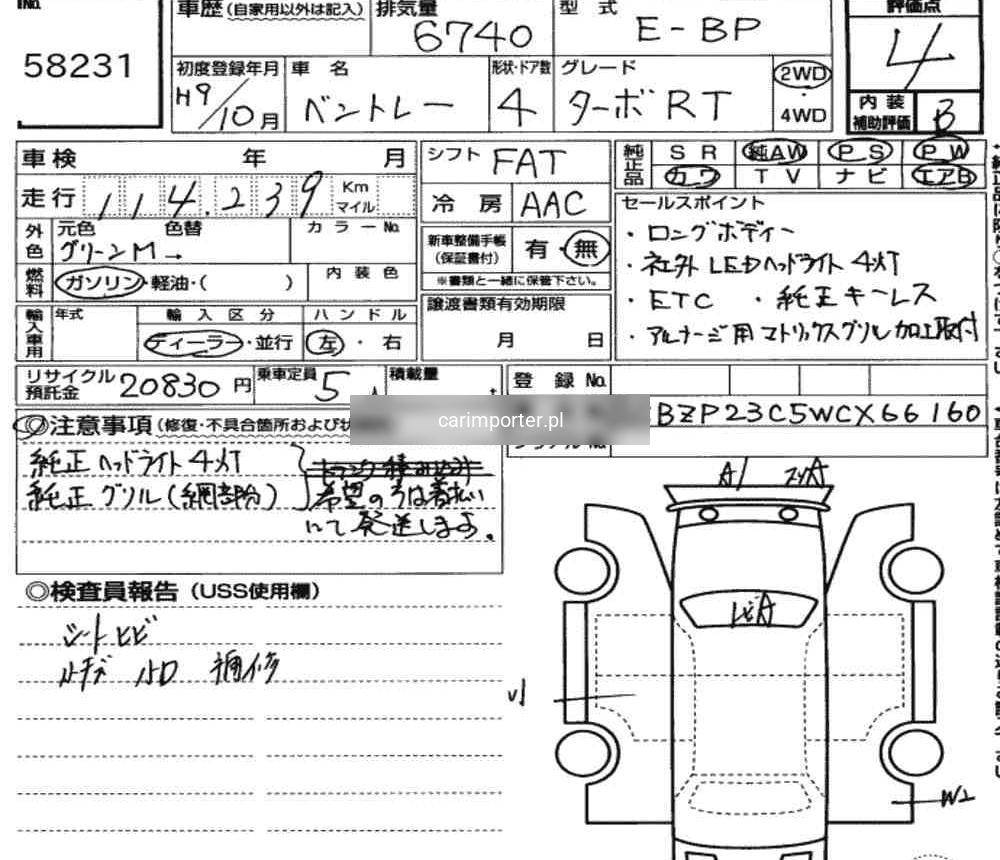 No.
58231
車歴 (自家用以外は記入)
排気量
6740
型式
E-BP
評価点
4
初度登録年月
H9/10月
車名
ベントレー
形状・ドア数
4
グレード
ターボRT
2WD
・
4WD
内装
補助評価
B
車検 年 月
シフト FAT
純正品
SR 純AW PS PW
カワ TV ナビ エアB
走行 114.239 Km マイル
冷房 AAC
セールスポイント
・ロングボディー
・社外LEDヘッドライト4灯
・ETC ・純正キーレス
・アルナージ用マトリックスグリル加工取付
外色
元色 色替 カラーNo.
グリーンM→
新車整備手帳
(保証書付)
有・無
※書類と一緒に保管下さい。
燃料
ガソリン・軽油・( )
内装色
譲渡書類有効期限
月 日
輸入車用
年式 輸入区分 ハンドル
ディーラー・並行 左・右
リサイクル
預託金
20830円
乗車定員 5人
積載量 t
登録No.
BZP23C5WCX66160
carimporter.pl
◎注意事項 (修復・不具合箇所および
純正ヘッドライト4灯
純正グリル(網部分)
トランク積み込み
希望の方は着払い
にて発送します。
◎検査員報告 (USS使用欄)
シートヒビ
ルーチデ 小D 補修
A1
U1
W2